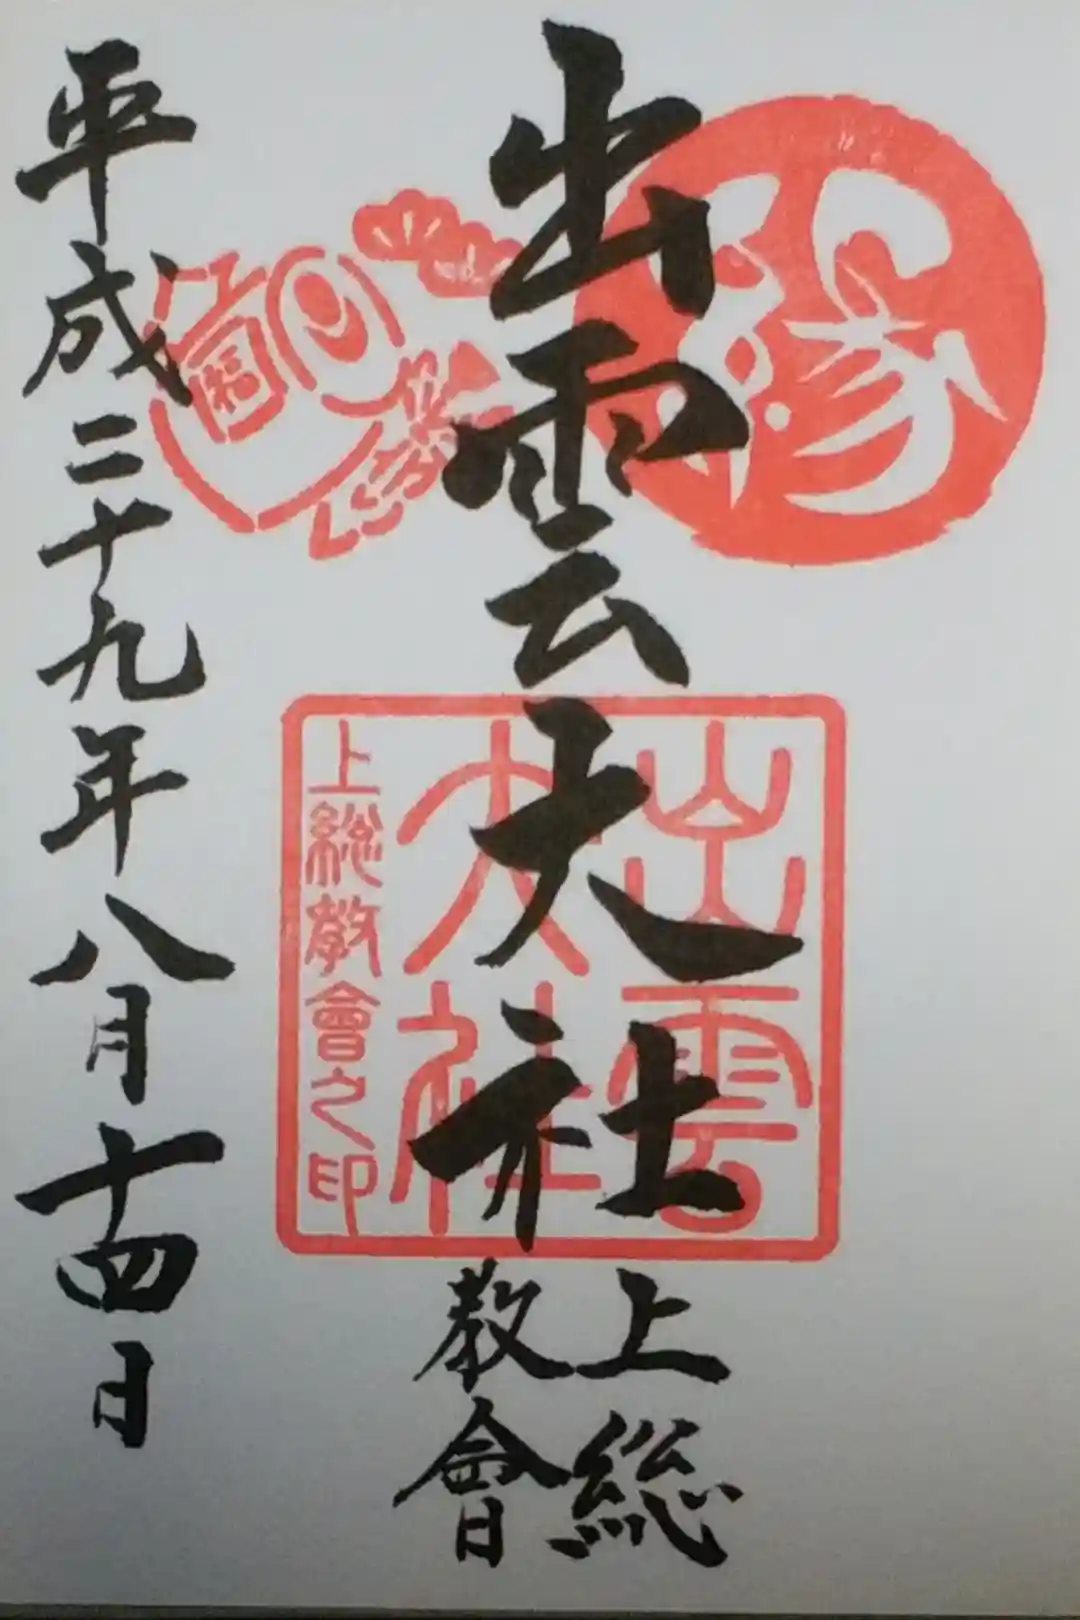 縁
出雲大社
上総
教會
出雲
大社
上総教會之印
平成二十九年八月十四日